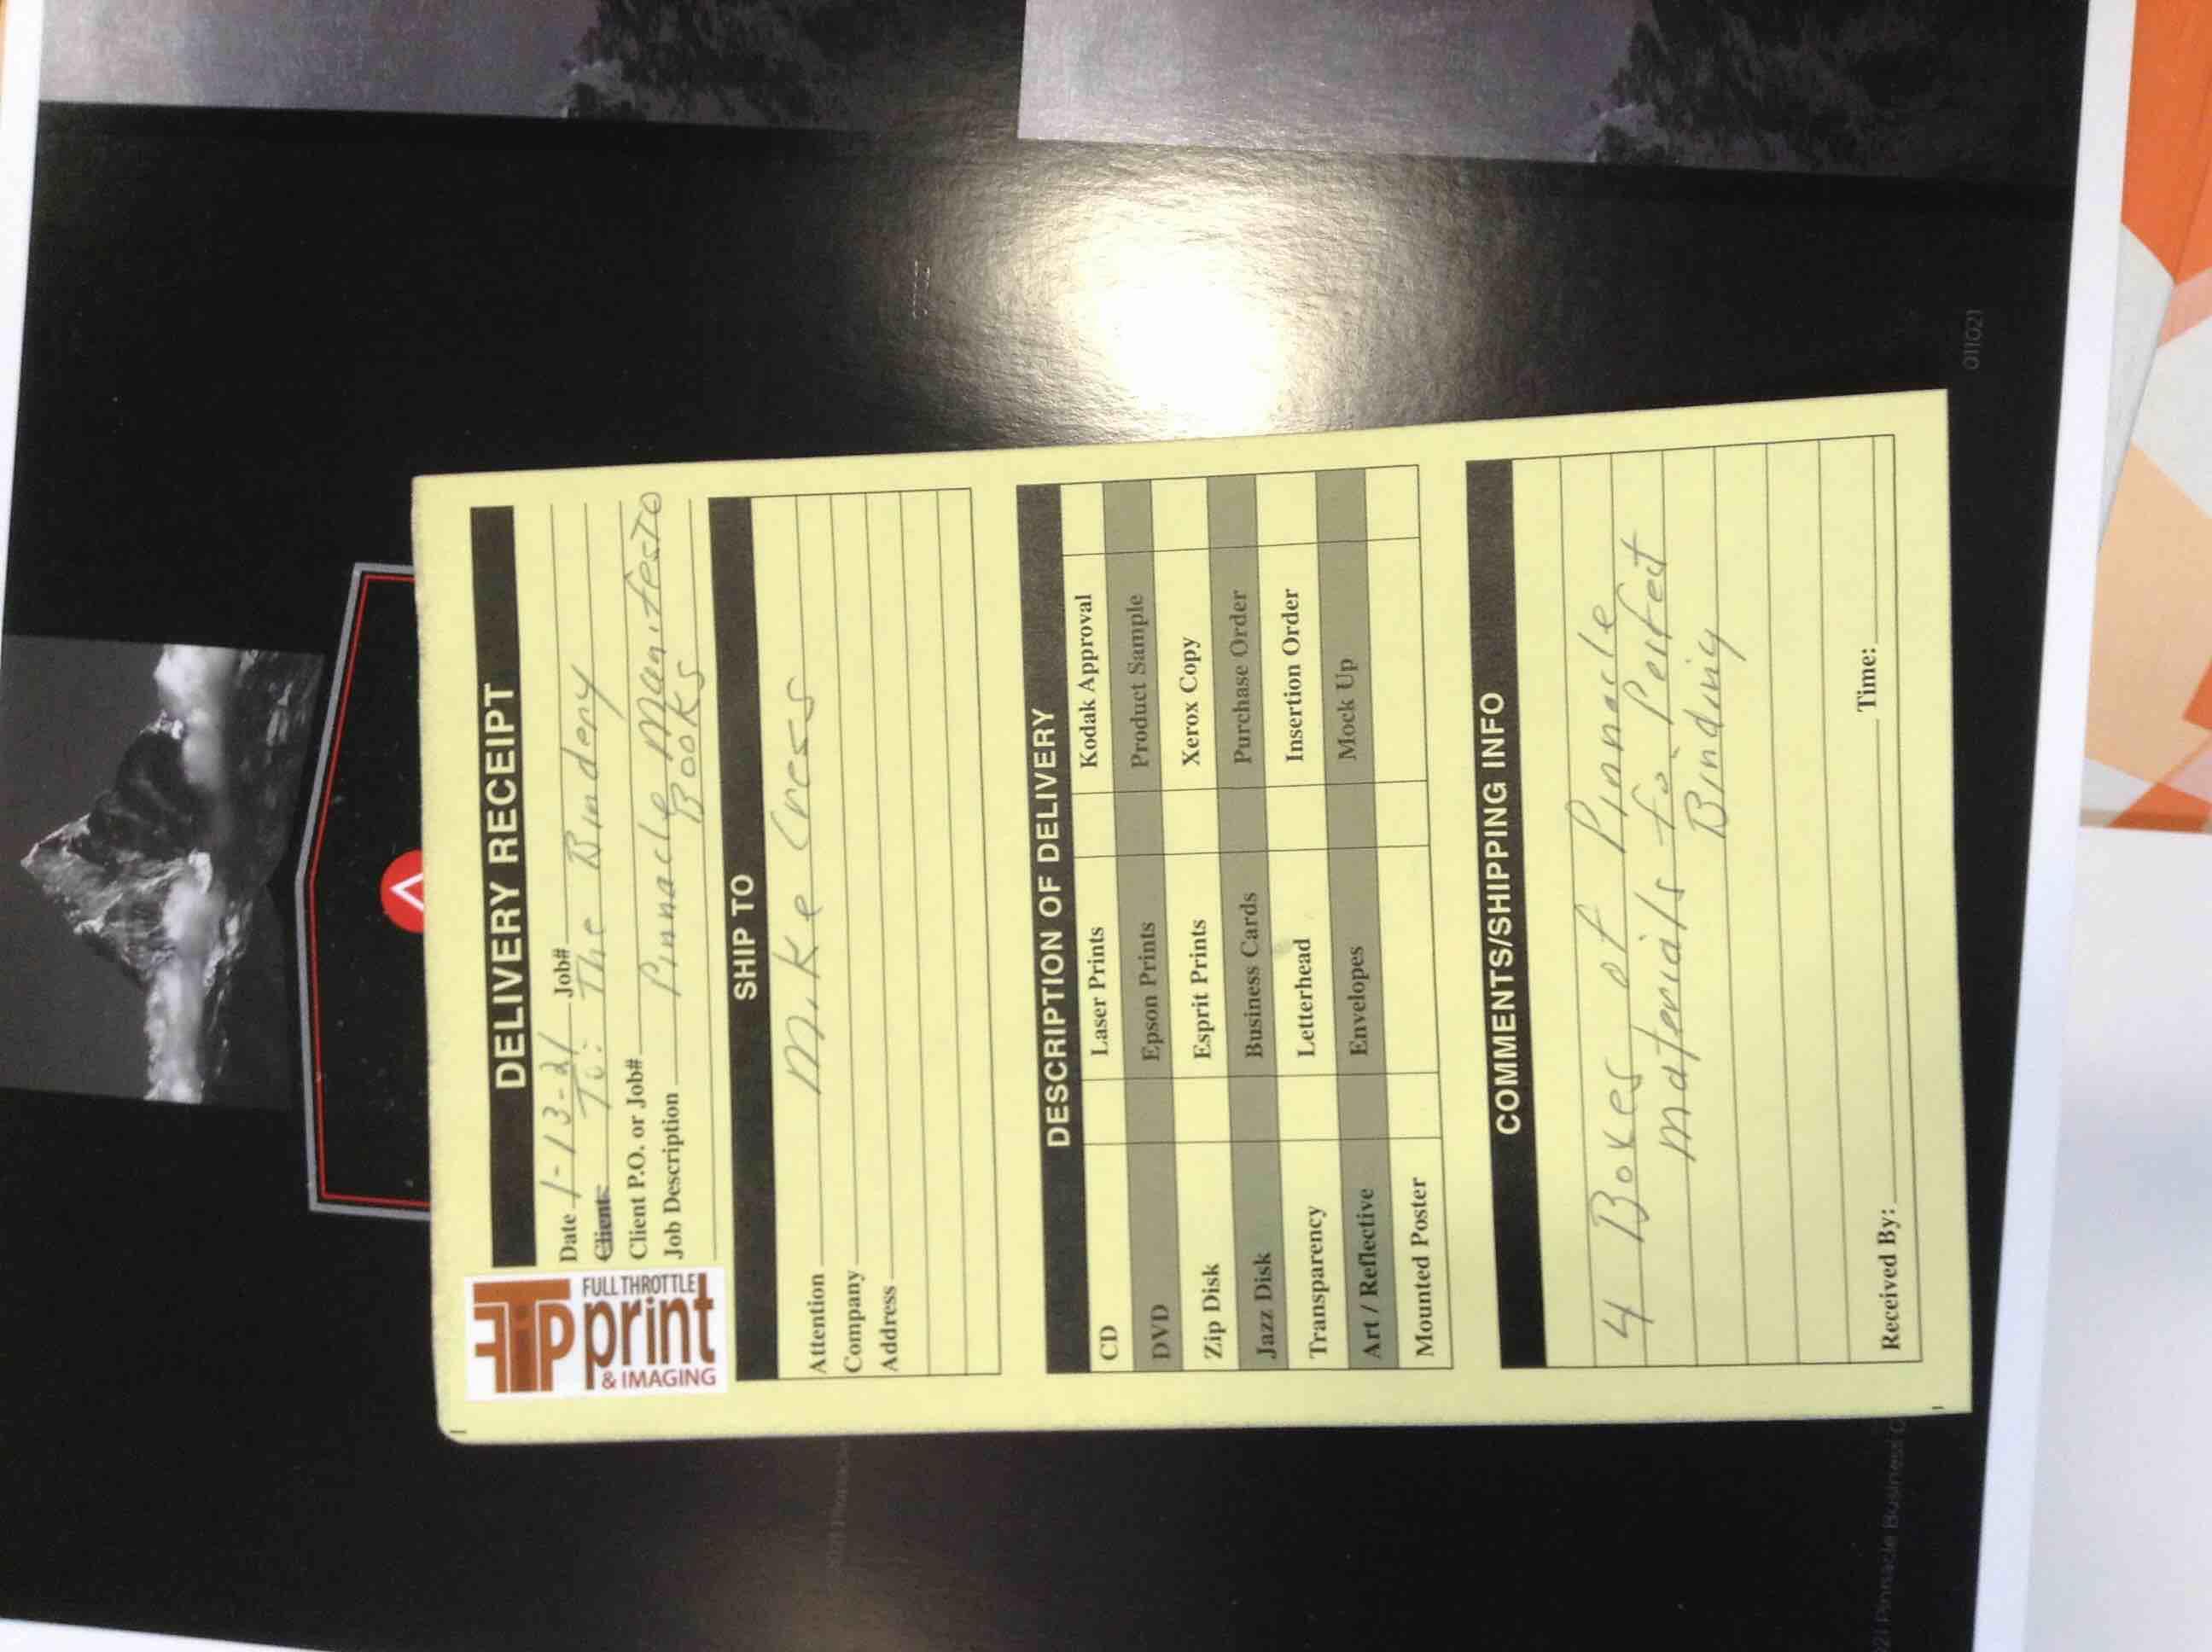 FTP
FULL THROTTLE
print
& IMAGING
DELIVERY RECEIPT
Date 1-13-21 Job#
Client: To: The Bindery
Client P.O. or Job#
Job Description Pinnacle Manifesto
Books
SHIP TO
Attention Mike Cress
Company
Address
DESCRIPTION OF DELIVERY
CD Laser Prints Kodak Approval
DVD Epson Prints Product Sample
Zip Disk Esprit Prints Xerox Copy
Jazz Disk Business Cards Purchase Order
Transparency Letterhead Insertion Order
Art / Reflective Envelopes Mock Up
Mounted Poster
COMMENTS/SHIPPING INFO
4 Boxes of Pinnacle
materials for Perfect
Binding
Received By: Time:
21 Pinnacle Business
011021